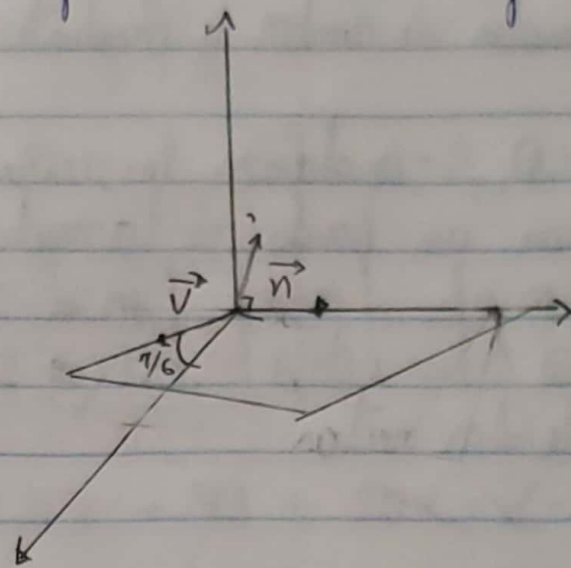 V n
π/6